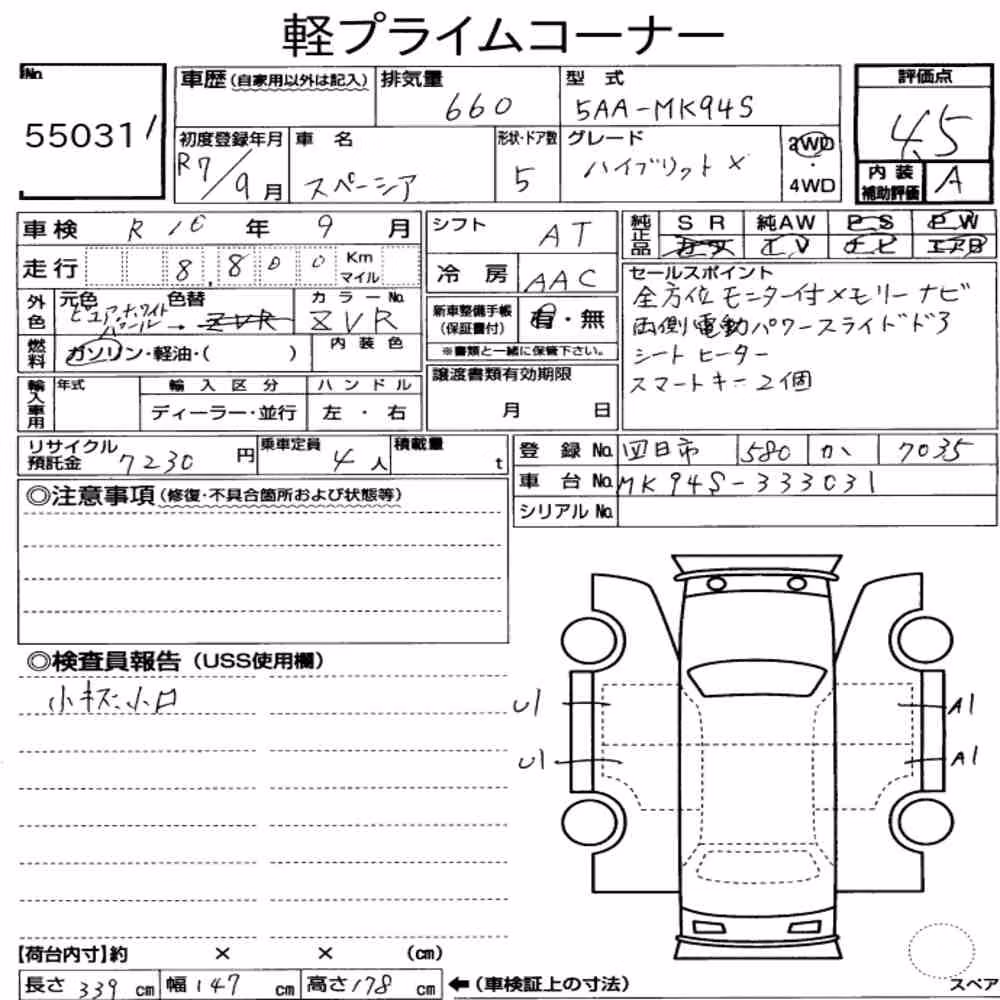 軽プライムコーナー
No. 55031
車歴(自家用以外は記入) 排気量 660 型式 5AA-MK94S 評価点 4.5
初度登録年月 R7/9月 車名 スペーシア 形状・ドア数 5 グレード ハイブリット X 2WD・4WD 内装補助評価 A
車検 R10年 9月 シフト AT 純正品 SR 純AW PS PW
走行 8,800 Km マイル 冷房 AAC カワ TV ナビ エアB
外色 元色 ピュアホワイトパール → 色替 ZVR カラーNo. ZVR 新車整備手帳(保証書付) 有・無
※書類と一緒に保管下さい。
燃料 ガソリン・軽油・( ) 内装色
セールスポイント
全方位モニター付メモリーナビ
両側電動パワースライドドア
シートヒーター
スマートキー2個
輸入車用 年式 輸入区分 ディーラー・並行 ハンドル 左・右 譲渡書類有効期限 月 日
リサイクル預託金 7230円 乗車定員 4人 積載量 t
登録No. 四日市 580 か 7035
車台No. MK94S-333031
シリアルNo.
◎注意事項(修復・不具合箇所および状態等)
◎検査員報告(USS使用欄)
小キズ小凹
U1 A1
U1 A1
【荷台内寸】約 × × (cm)
長さ 339 cm 幅 147 cm 高さ 178 cm ←(車検証上の寸法)
スペア